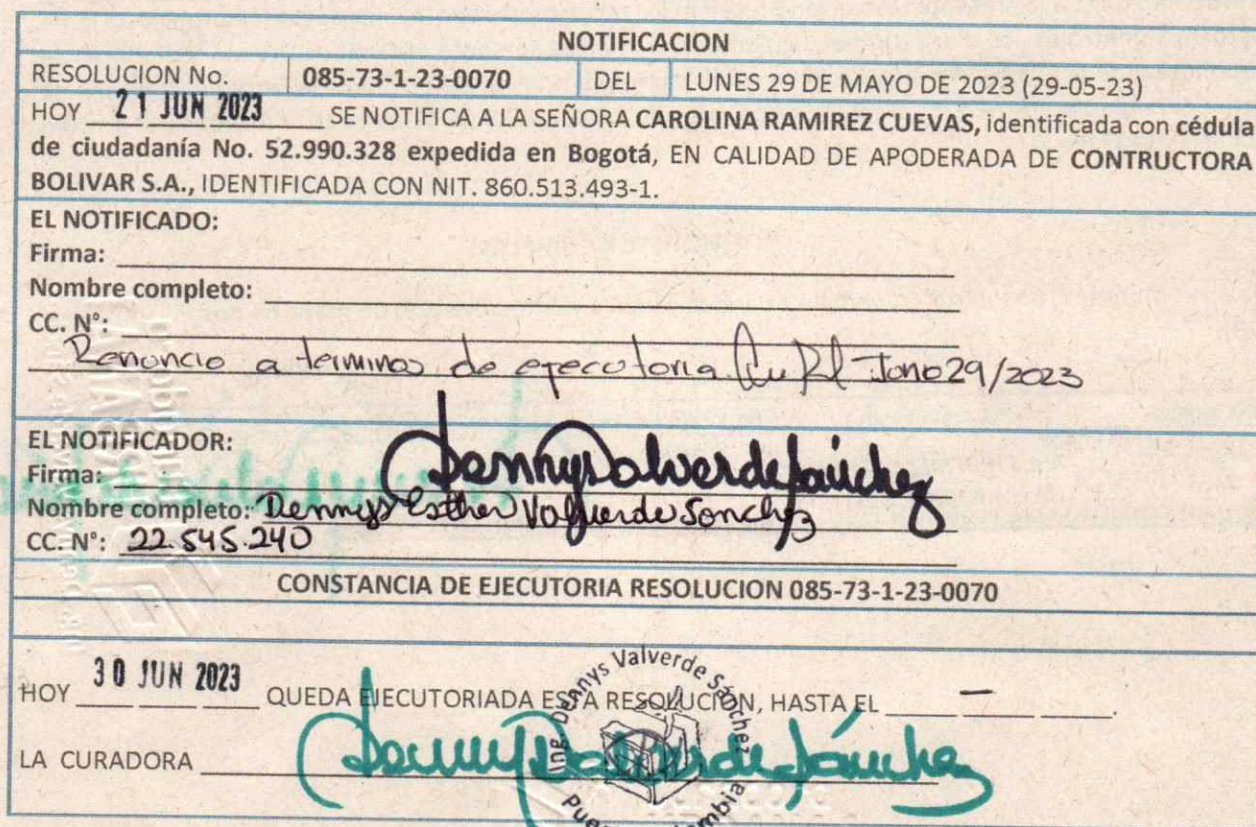 NOTIFICACION
RESOLUCION No. 085-73-1-23-0070 DEL LUNES 29 DE MAYO DE 2023 (29-05-23)
HOY 21 JUN 2023 SE NOTIFICA A LA SEÑORA CAROLINA RAMIREZ CUEVAS, identificada con cédula
de ciudadanía No. 52.990.328 expedida en Bogotá, EN CALIDAD DE APODERADA DE CONTRUCTORA
BOLIVAR S.A., IDENTIFICADA CON NIT. 860.513.493-1.
EL NOTIFICADO:
Firma:
Nombre completo:
CC. N°:
Renuncio a terminos de ejecutoria Junio 29/2023
EL NOTIFICADOR:
Firma: Dennys Valverde Sánchez
Nombre completo: Dennys Esther Valverde Sanchez
CC. N°: 22.545.240
CONSTANCIA DE EJECUTORIA RESOLUCION 085-73-1-23-0070
HOY 30 JUN 2023 QUEDA EJECUTORIADA ESTA RESOLUCION, HASTA EL —.
Ing. Dennys Valverde Sánchez
LA CURADORA Dennys Valverde Sánchez